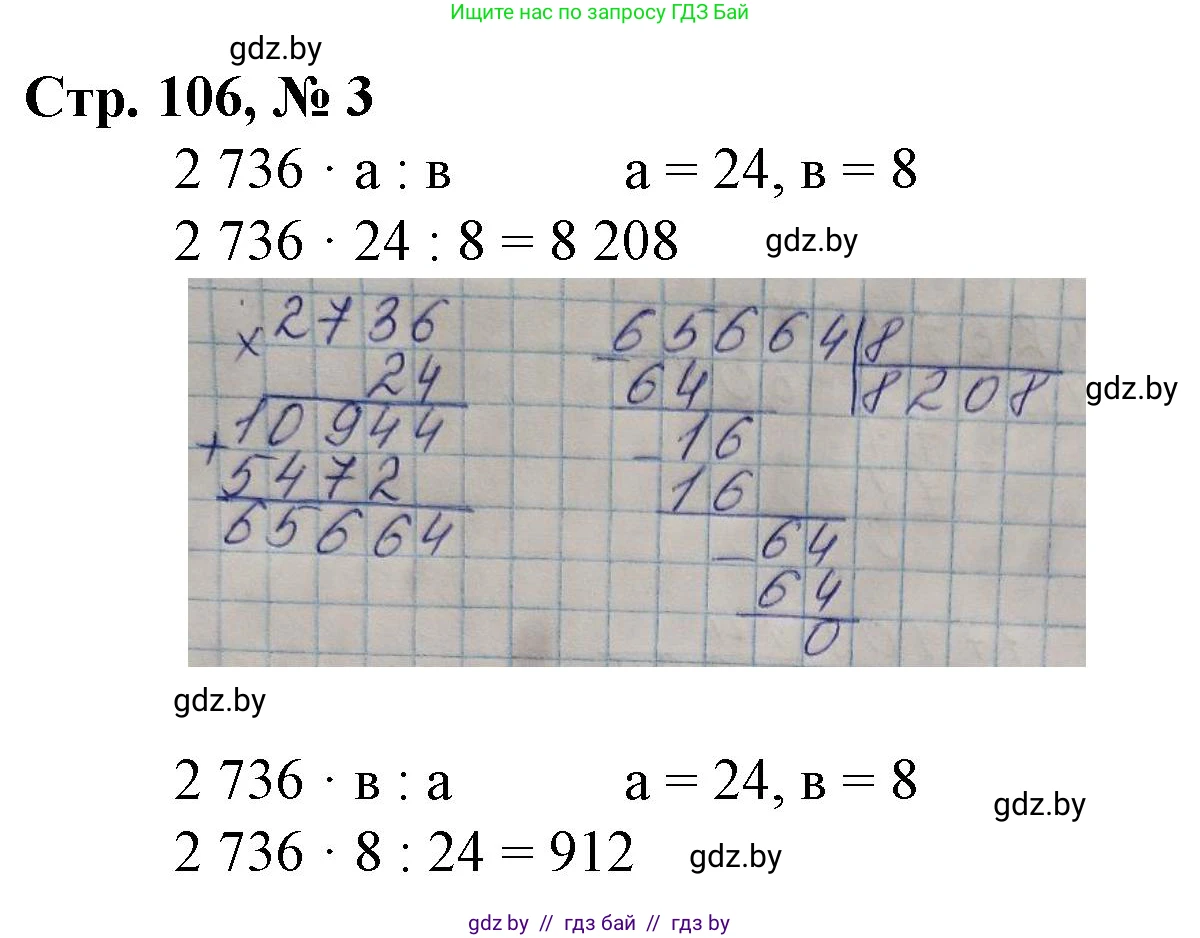 Ищите нас по запросу ГДЗ Бай
gdz.by
Стр. 106, № 3
2 736 · а : в а = 24, в = 8
2 736 · 24 : 8 = 8 208 gdz.by
× 2736
24
10944
+ 5472
65664
– 65664 | 8
64 8208 gdz.by
– 16
16
– 64
64
0
gdz.by
2 736 · в : а а = 24, в = 8 gdz.by
2 736 · 8 : 24 = 912 gdz.by
gdz by // гдз бай // гдз by